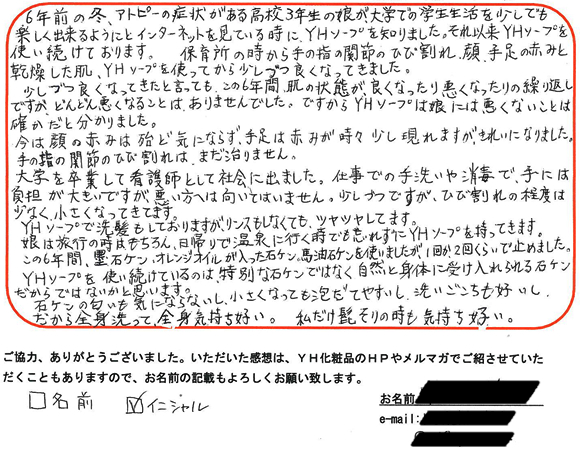 6年前の冬、アトピーの症状がある高校3年生の娘が大学での学生生活を少しでも
楽しく出来るようにとインターネットを見ている時に、YHソープを知りました。それ以来YHソープを
使い続けております。 保育所の時から手の指の関節のひび割れ、顔、手足の赤みと
乾燥した肌、YHソープを使ってから少しづつ良くなってきました。
少しづつ良くなってきたと言っても、この6年間、肌の状態が良くなったり悪くなったりの繰り返し
ですが、どんどん悪くなることは、ありませんでした。ですからYHソープは娘には悪くないことは
確かだと分かりました。
今は顔の赤みは殆ど気にならず、手足は赤みが時々少し現れますがきれいになりました。
手の指の関節のひび割れは、まだ治りません。
大学を卒業して看護師として社会に出ました。仕事での手洗いや消毒で、手には
負担が大きいですが悪い方へは向いてはいません。少しづつですが、ひび割れの程度は
少なく、小さくなってきてます。
YHソープで洗髪もしておりますがリンスもしなくても、ツヤツヤしてます。
娘は旅行の時はもちろん、日帰りで温泉に行く時でも忘れずにYHソープを持ってきます。
この6年間、墨石ケン、オレンジオイルが入った石ケン、馬油石ケンを使いましたが、1回か2回くらいで止めました。
YHソープを使い続けているのは、特別な石ケンではなく自然と身体に受け入れられる石ケン
だからではないかと思います。
石ケンの匂いも気にならないし、小さくなっても泡だてやすいし、洗いごこちも好いし、
だから全身洗って、全身気持ち好い。 私だけ髭そりの時も気持ち好い。
ご協力、ありがとうございました。いただいた感想は、YH化粧品のHPやメルマガでご紹介させていた
だくこともありますので、お名前の記載もよろしくお願い致します。
□名前 ☑イニシャル
お名前
e-mail: